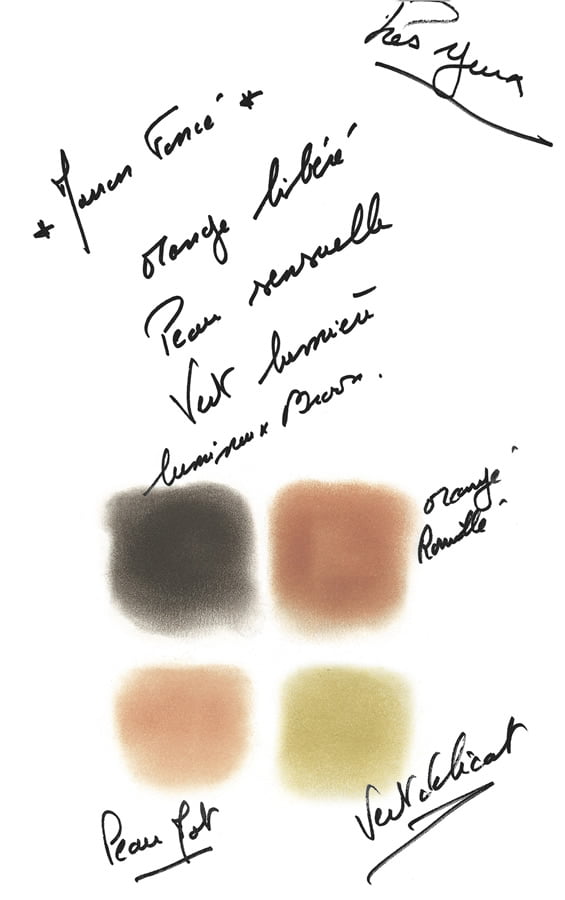 Les Yeux
* Marron Foncé *
orange libéré
Peau sensuelle
Vert lumière
lumineux Brown.
orangé
Rouillé
Peau
Vert délicat